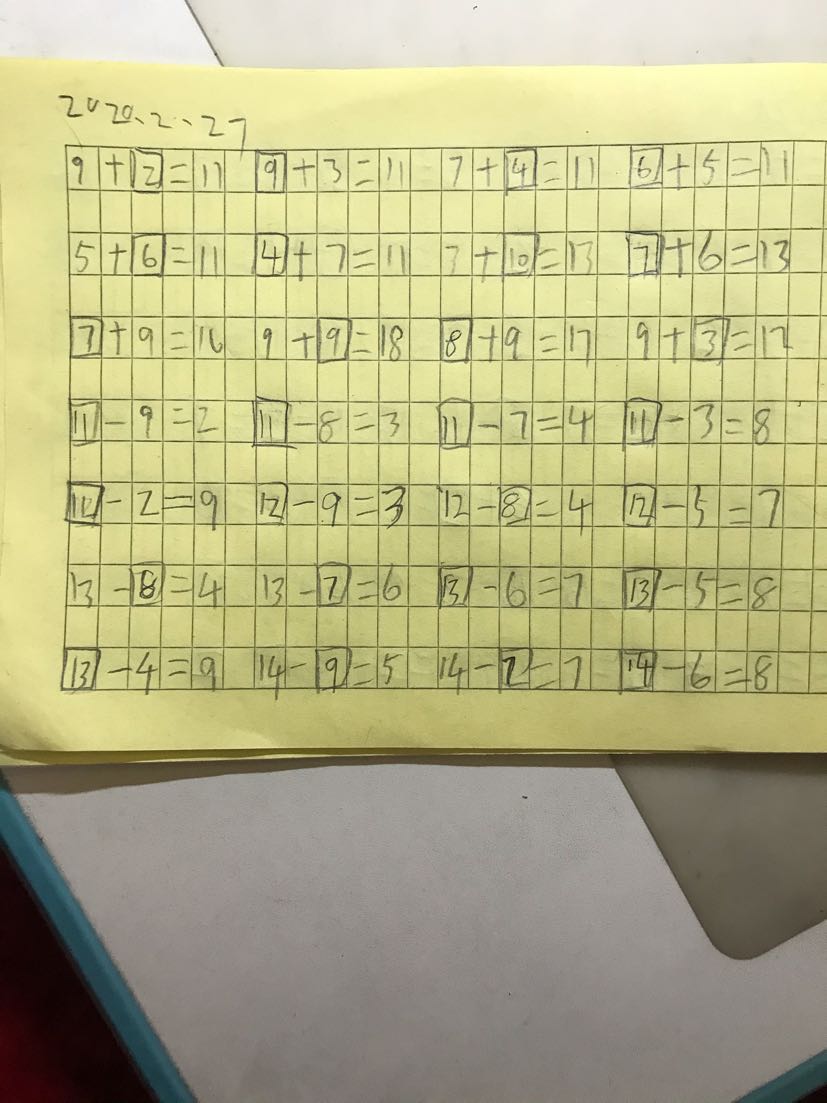 2020.2.27
9+2=11 9+3=11 7+4=11 6+5=11
5+6=11 4+7=11 3+10=13 7+6=13
7+9=16 9+9=18 8+9=17 9+3=12
11-9=2 11-8=3 11-7=4 11-3=8
11-2=9 12-9=3 12-8=4 12-5=7
13-8=4 13-7=6 13-6=7 13-5=8
13-4=9 14-9=5 14-7=7 14-6=8